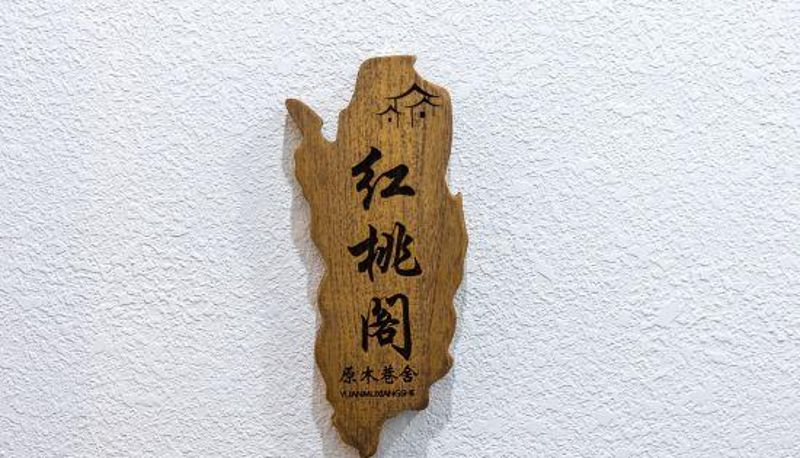 红桃阁
原木巷舍
YUANMUXIANGSHE